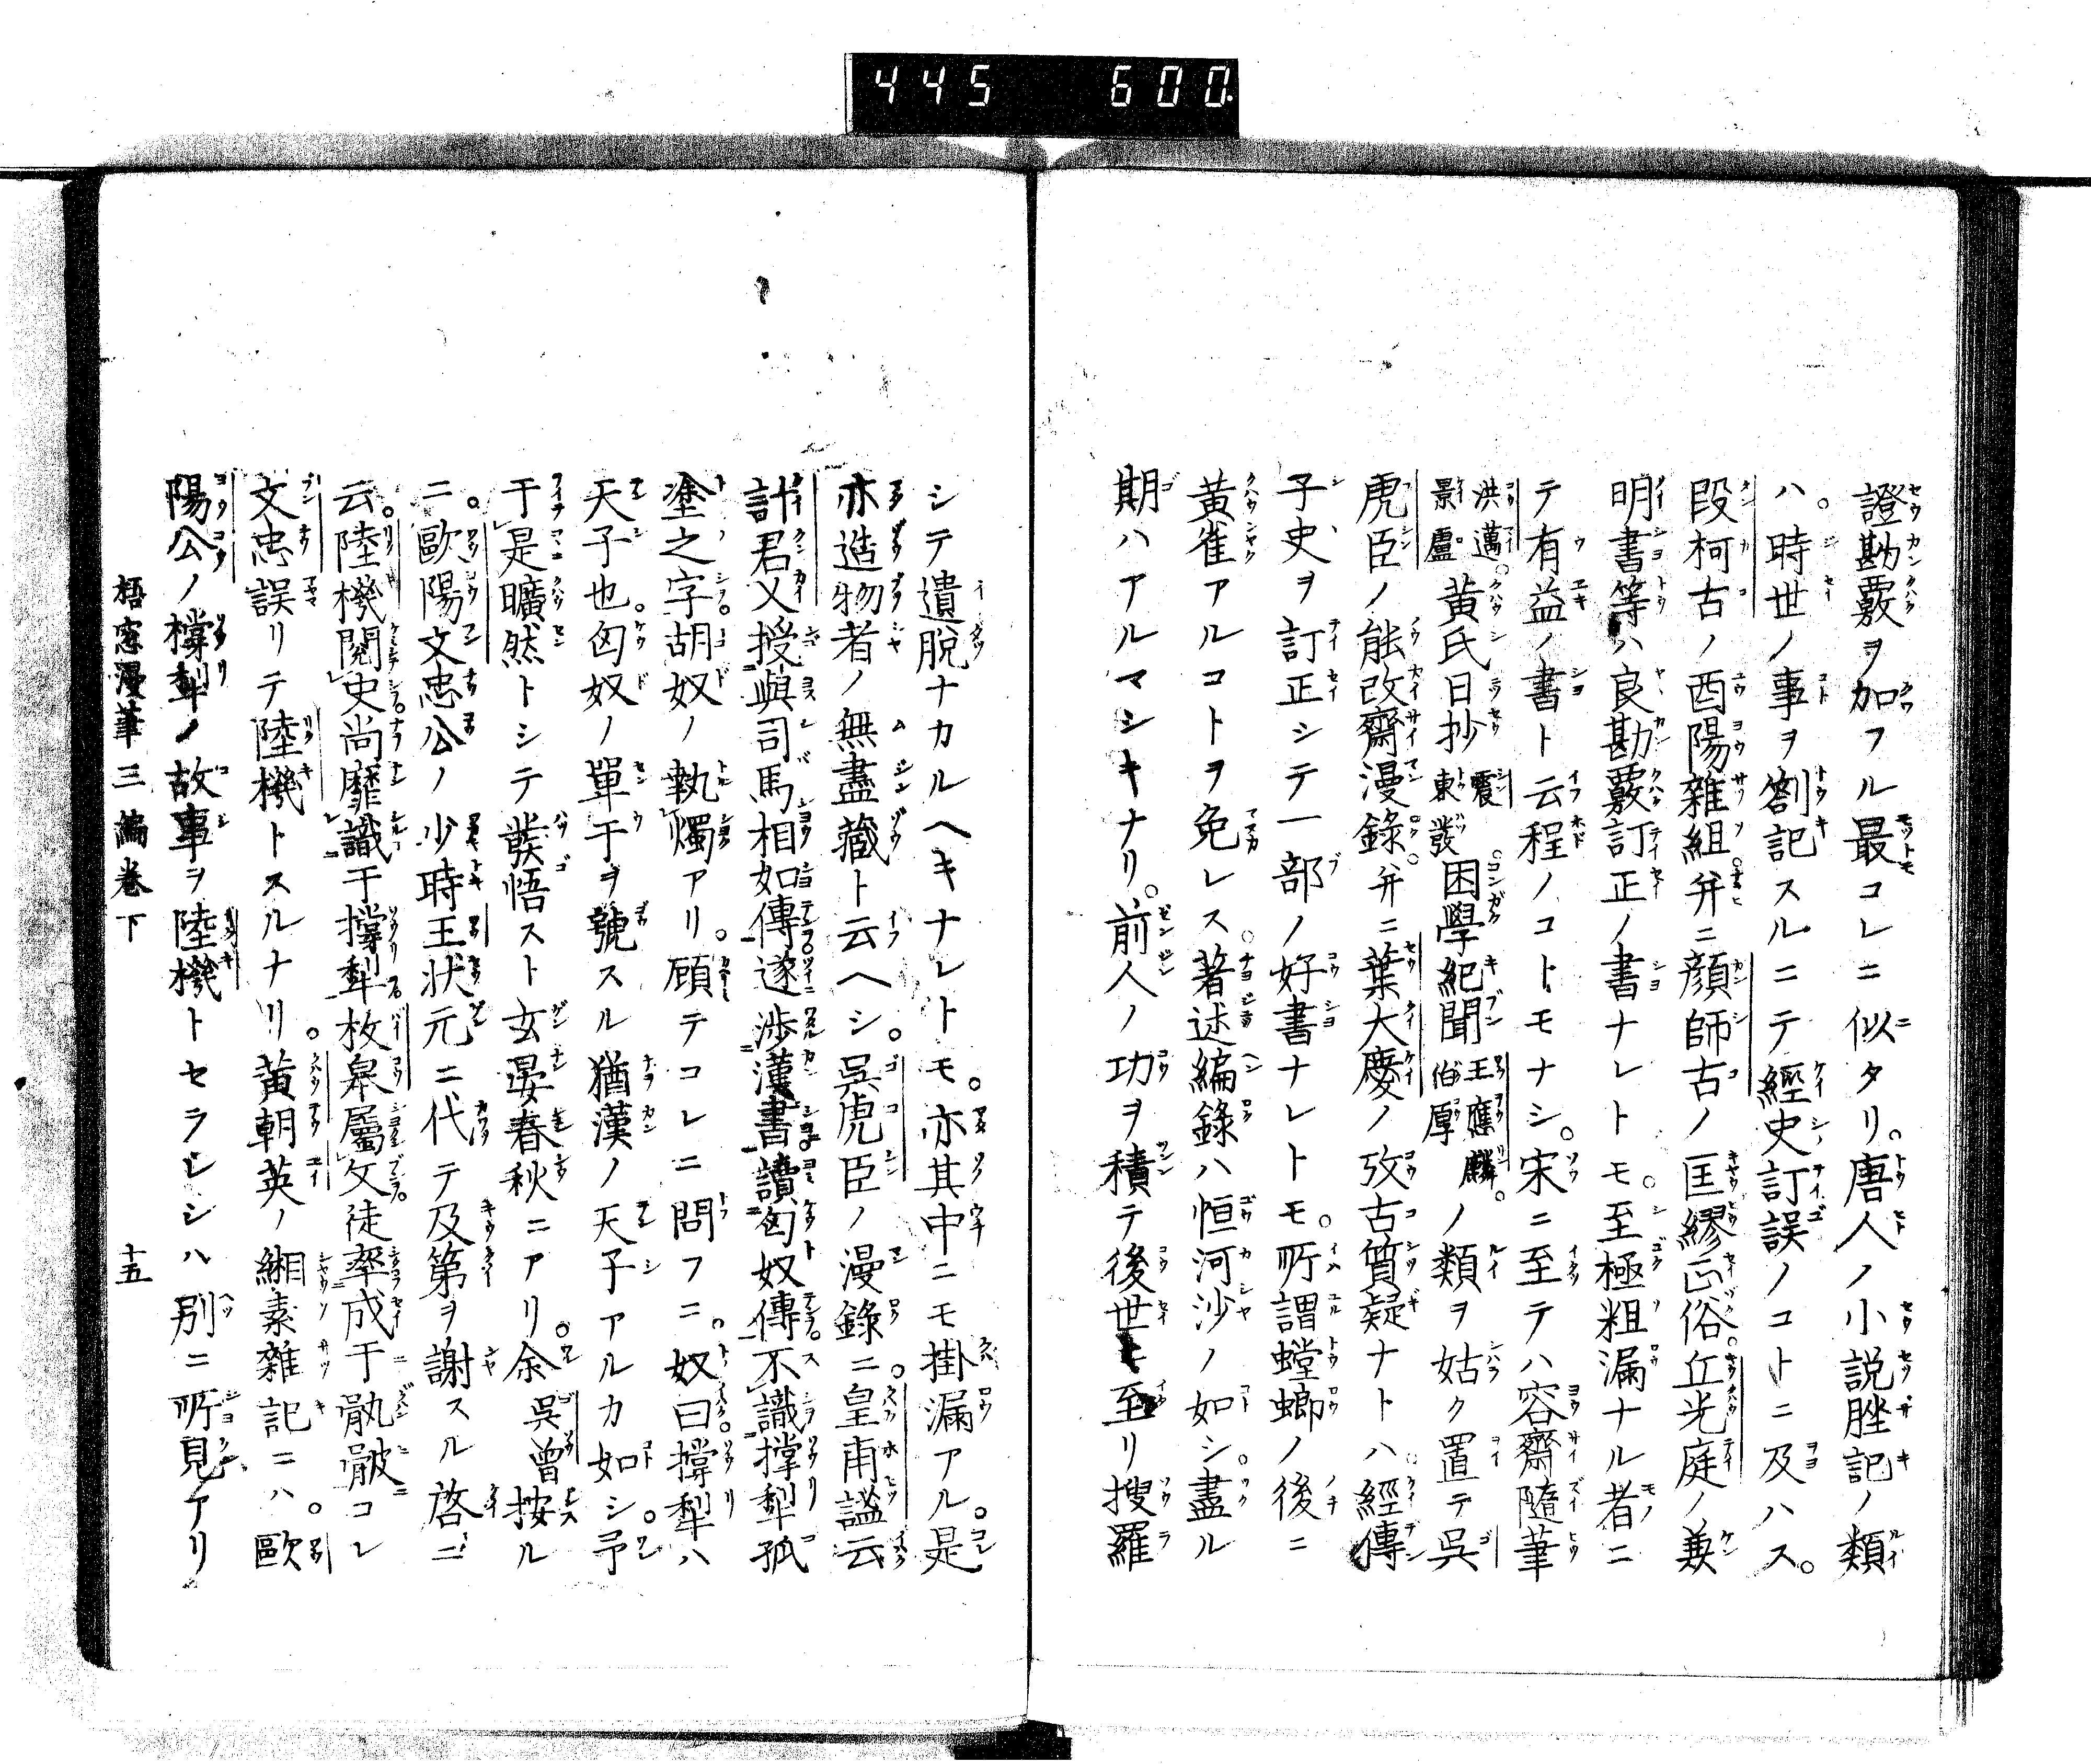 445 600
證勘覈ヲ加フル最コレニ似タリ。唐人ノ小説脞記ノ類
ハ。時世ノ事ヲ劄記スルニテ經史訂誤ノコトニ及ハス。
段柯古ノ酉陽雜組。并ニ顔師古ノ匡繆正俗。丘光庭ノ兼
明書等ハ良勘覈訂正ノ書ナレトモ。至極粗漏ナル者ニ
テ有益ノ書ト云程ノコトモナシ。宋ニ至テハ容齋隨筆
洪邁。景盧黄氏日抄震東發。困學紀聞王應麟。伯厚ノ類ヲ姑ク置テ吳
虎臣ノ能改齋漫錄。并ニ葉大慶ノ攷古質疑ナトハ。經傳
子史ヲ訂正シテ一部ノ好書ナレトモ。所謂螳螂ノ後ニ
黄雀アルコトヲ免レス。著述編錄ハ恒河沙ノ如シ。盡ル
期ハアルマシキナリ。前人ノ功ヲ積テ後世ニ至リ搜羅
シテ遺脱ナカルヘキナレトモ。亦其中ニモ掛漏アル。是
亦造物者ノ無盡藏ト云ヘシ。吳虎臣ノ漫錄ニ。皇甫謐云
計君又授與司馬相如傳。遂渉漢書讀匈奴傳。不識撐犁孤
塗之字。胡奴ノ執燭アリ。顧テコレニ問フニ。奴曰。撐犁ハ
天子也。匈奴ノ單于ヲ號スル猶漢ノ天子アルカ如シ。予
于是曠然トシテ發悟スト玄晏春秋ニアリ。余吳曾按ル
ニ。歐陽文忠公ノ少時王状元ニ代テ及第ヲ謝スル啓ニ
云。陸機閲史。尚靡識于撐犁。枚皋屬文。徒率成于骫骳コレ
文忠誤リテ陸機トスルナリ。黄朝英ノ緗素雜記ニハ。歐
陽公ノ撐犁ノ故事ヲ陸機トセラレシハ別ニ所見アリ
梧窓漫筆三編卷下 十五